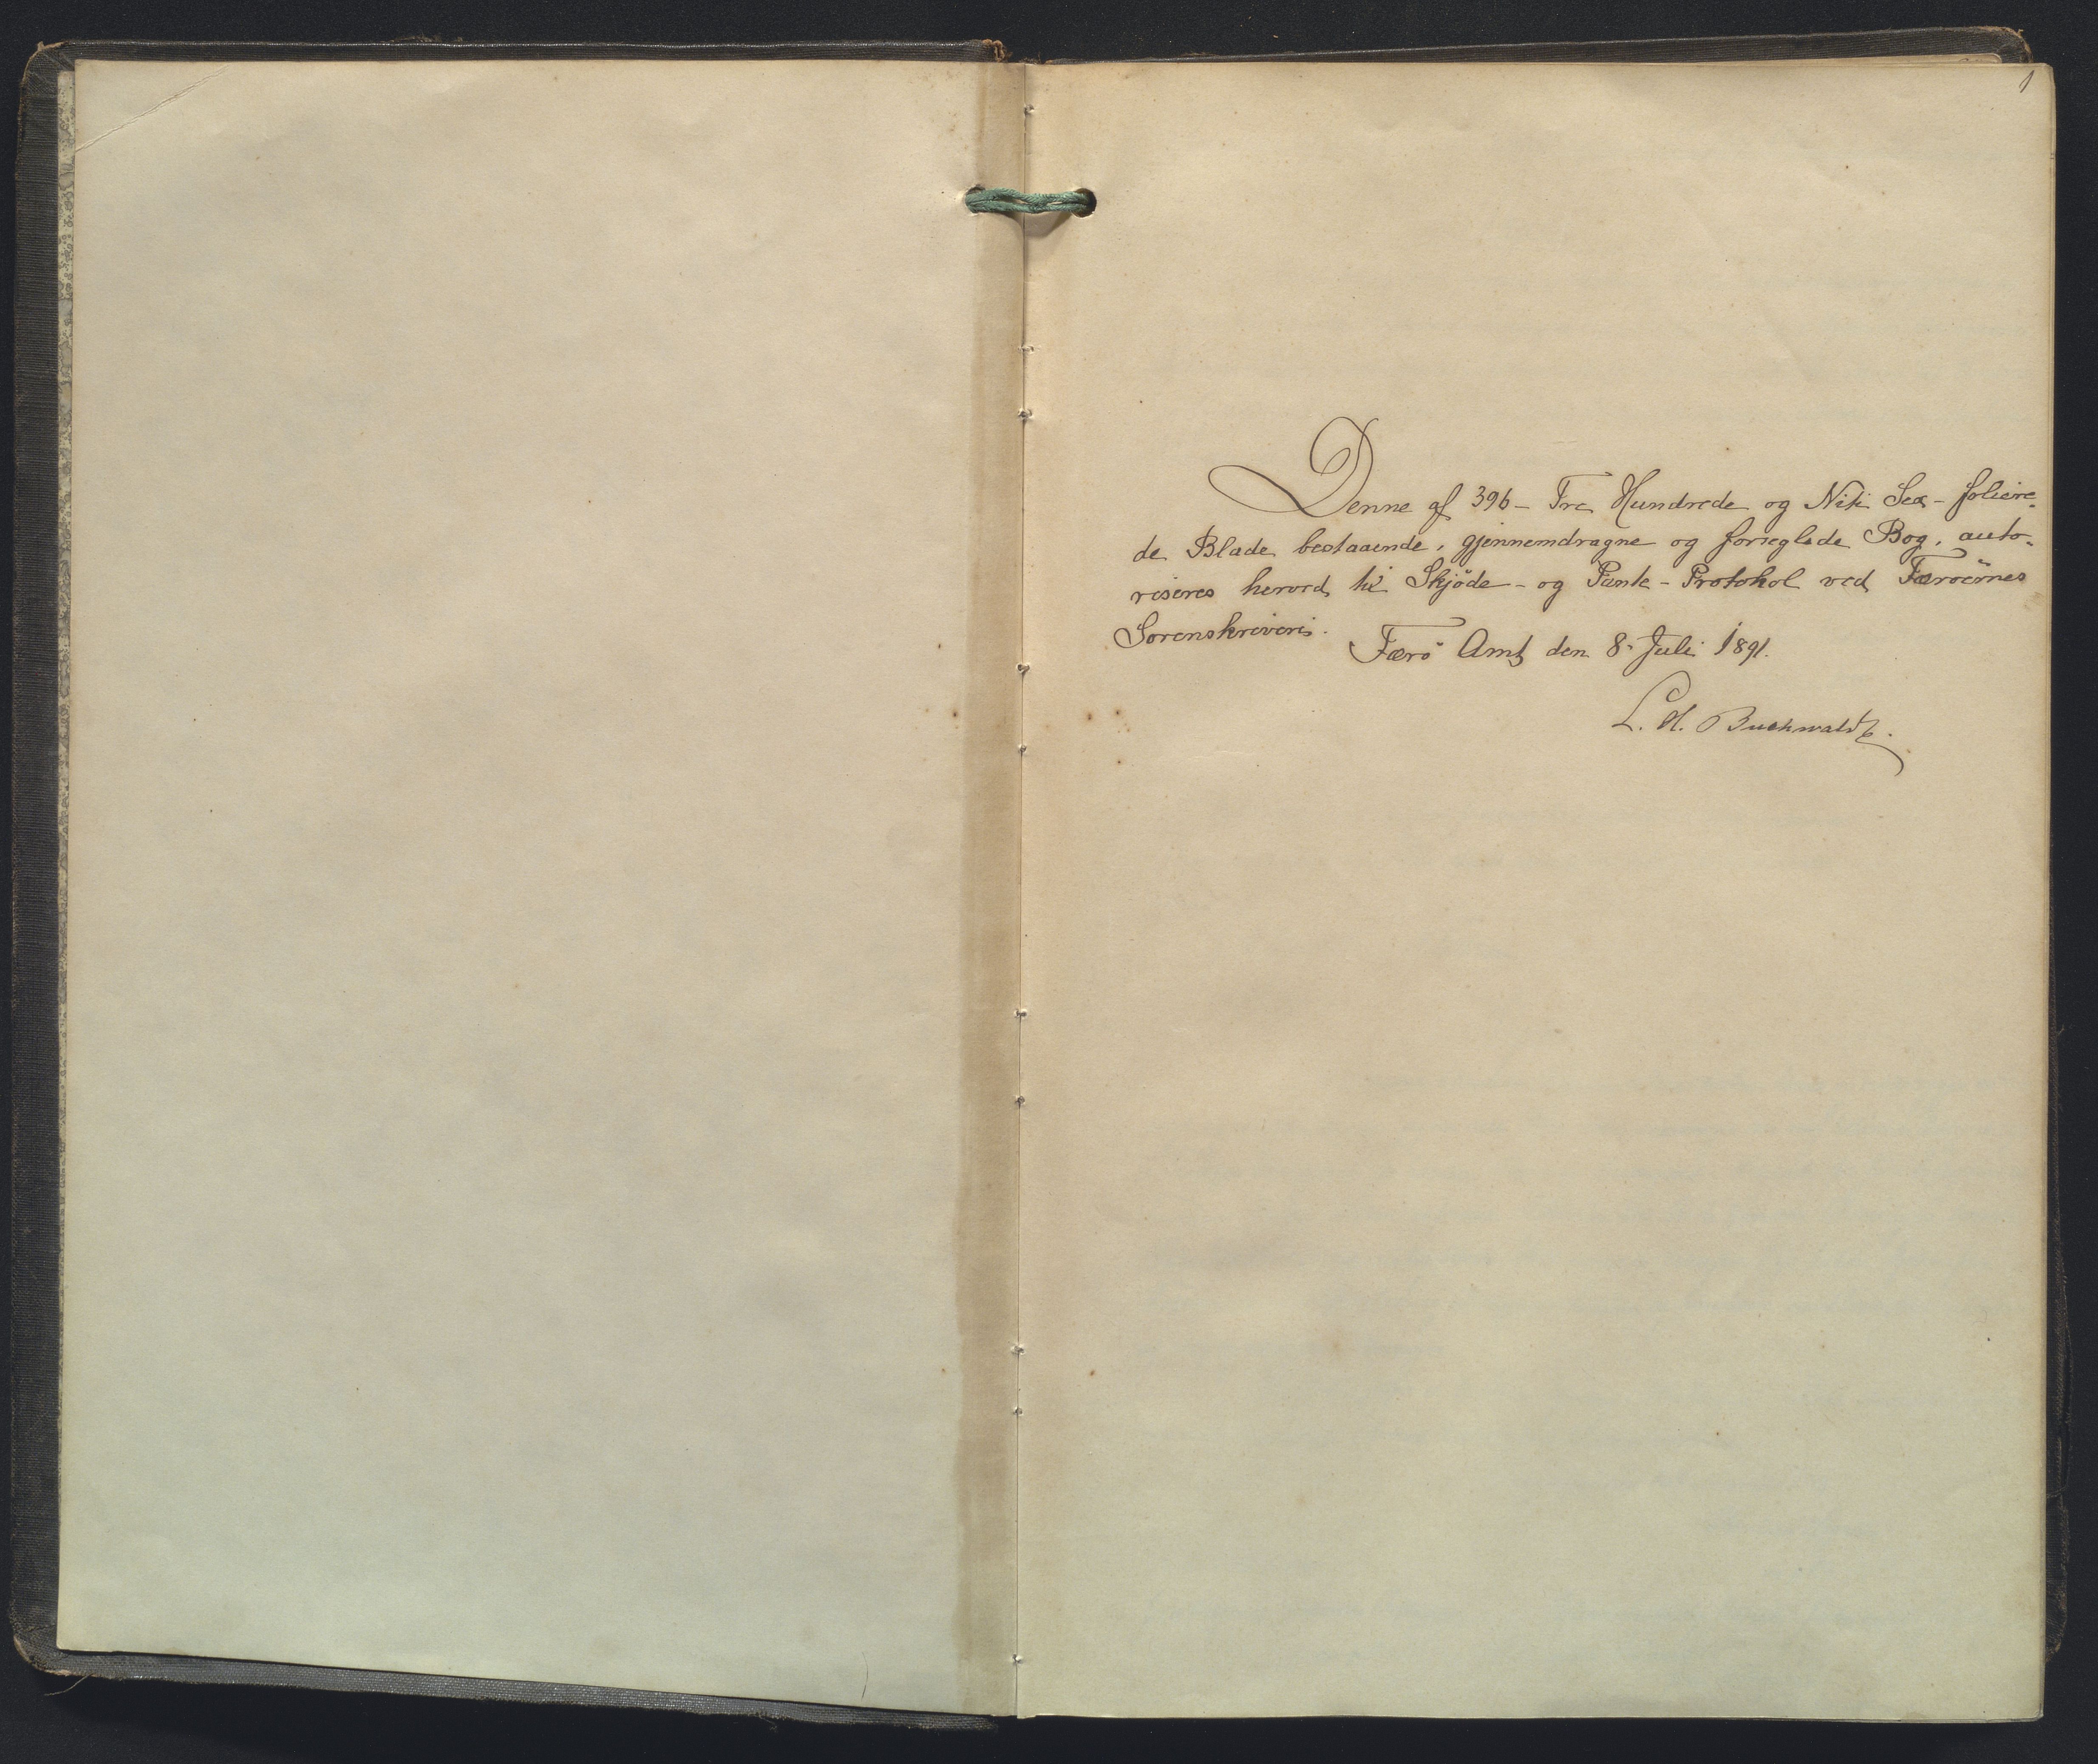 1
Denne af 396 - Tre Hundrede og Niti Sex - foliere-
de Blade bestaaende, gjennemdragne og forseglede Bog, auto-
riseres herved til Skjöde - og Pante - Protokol ved Færöernes
Sorenskriveri.
Færö Amt den 8. Juli 1891.
L. H. Buchwaldt.